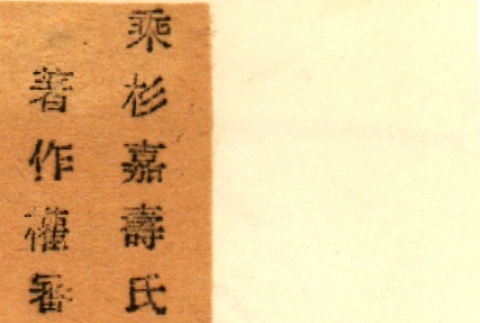 乘杉嘉壽氏
著作權審